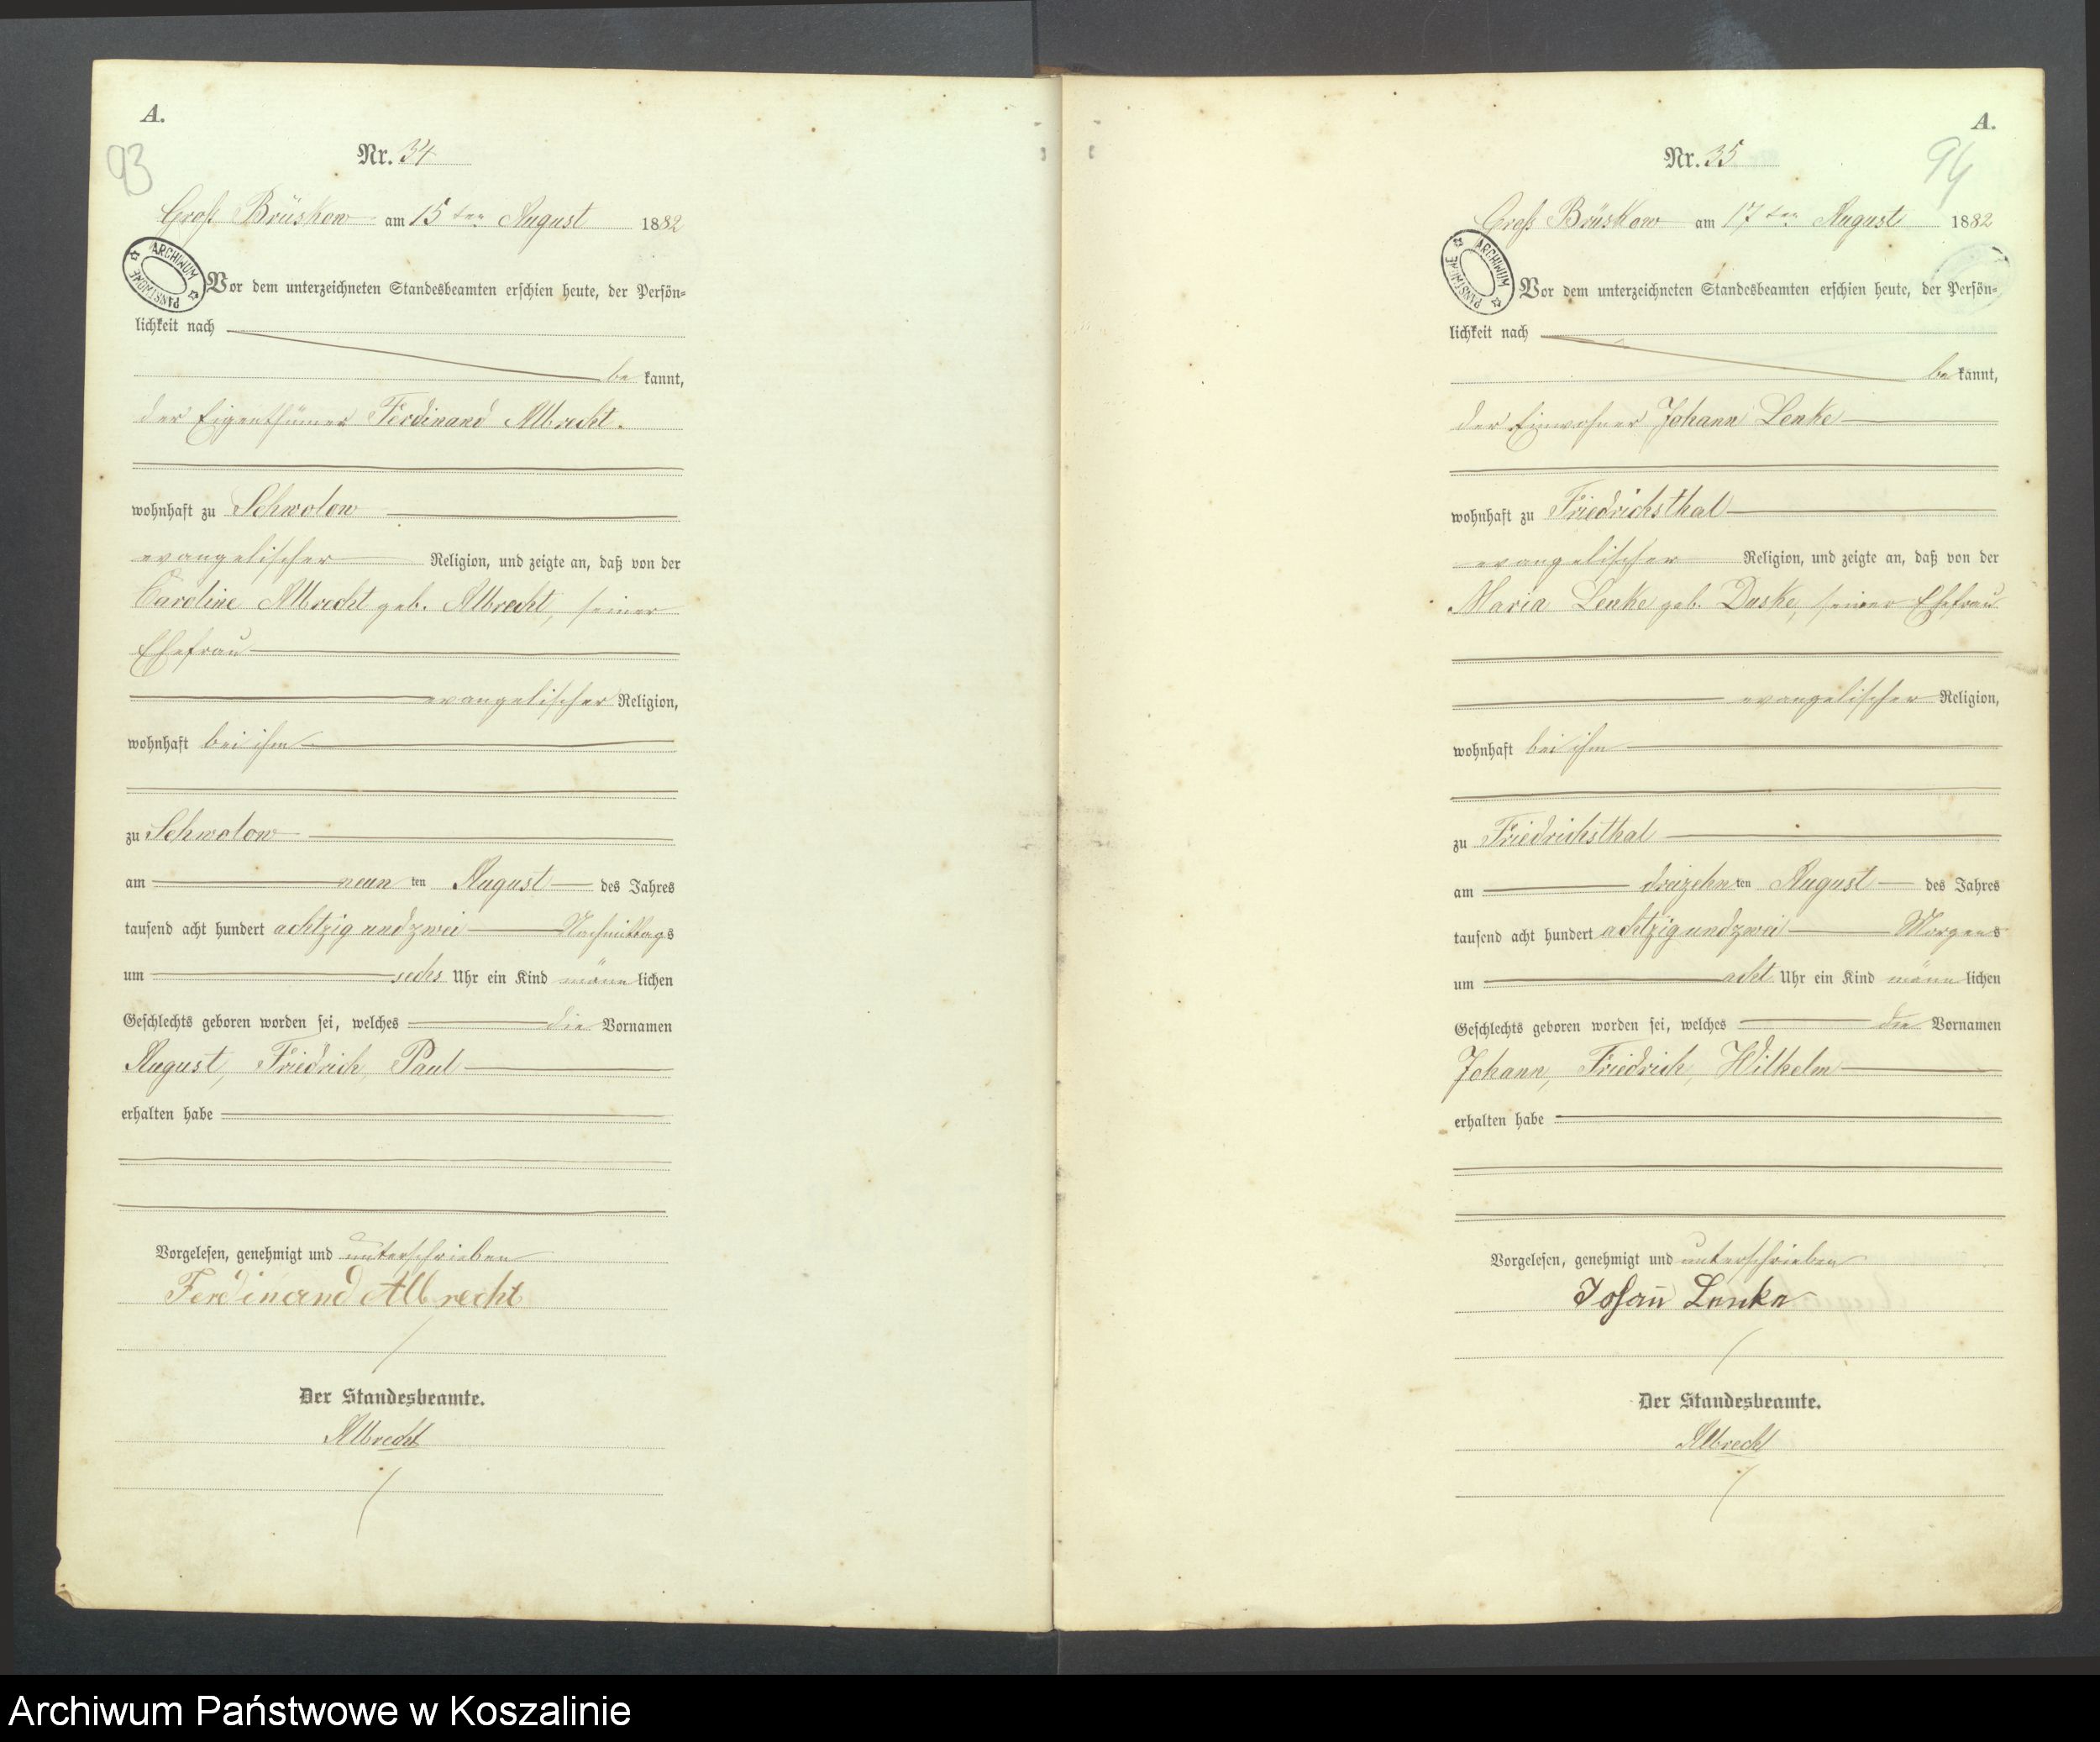 A.
93
Nr. 34
Groß Brüskow am 15ten August 1882
ARCHIWUM PAŃSTWOWE
Vor dem unterzeichneten Standesbeamten erschien heute, der Persön-
lichkeit nach
be kannt,
der Eigenthümer Ferdinand Albrecht.
wohnhaft zu Schwolow
evangelischer Religion, und zeigte an, daß von der
Caroline Albrecht geb. Albrecht, seiner
Ehefrau
evangelischer Religion,
wohnhaft bei ihm
zu Schwolow
am neun ten August des Jahres
tausend acht hundert achtzig und zwei Nachmittags
um sechs Uhr ein Kind männ lichen
Geschlechts geboren worden sei, welches die Vornamen
August, Friedrich, Paul
erhalten habe
Vorgelesen, genehmigt und unterschrieben
Ferdinand Albrecht
Der Standesbeamte.
Albrecht
A.
94
Nr. 35
Groß Brüskow am 17ten August 1882
ARCHIWUM PAŃSTWOWE
Vor dem unterzeichneten Standesbeamten erschien heute, der Persön-
lichkeit nach
be kannt,
der Einwohner Johann Lenke
wohnhaft zu Friedrichsthal
evangelischer Religion, und zeigte an, daß von der
Maria Lenke geb. Duske, seiner Ehefrau
evangelischer Religion,
wohnhaft bei ihm
zu Friedrichsthal
am dreizehn ten August des Jahres
tausend acht hundert achtzig und zwei Morgens
um acht Uhr ein Kind männ lichen
Geschlechts geboren worden sei, welches die Vornamen
Johann, Friedrich, Wilhelm
erhalten habe
Vorgelesen, genehmigt und unterschrieben
Johan̄ Lenke
Der Standesbeamte.
Albrecht
Archiwum Państwowe w Koszalinie